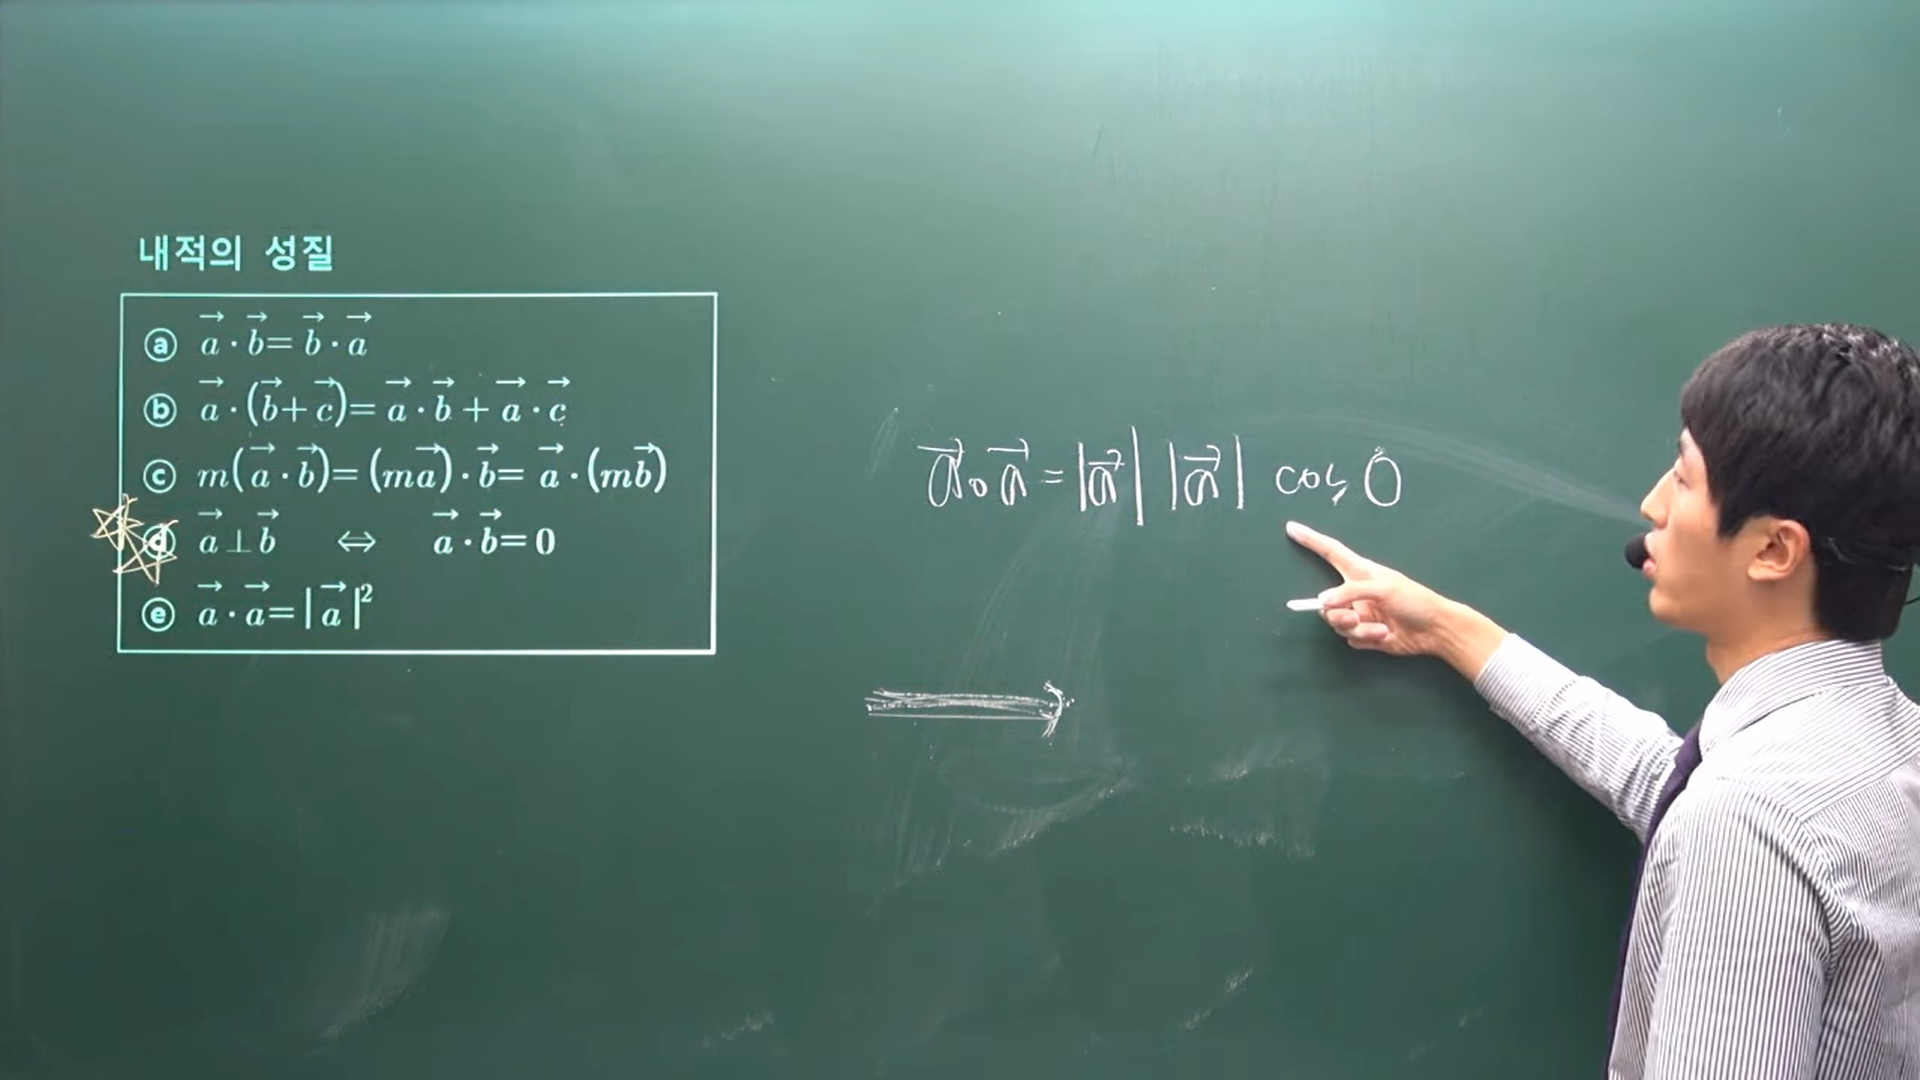 내적의 성질
ⓐ $\vec{a} \cdot \vec{b} = \vec{b} \cdot \vec{a}$
ⓑ $\vec{a} \cdot (\vec{b} + \vec{c}) = \vec{a} \cdot \vec{b} + \vec{a} \cdot \vec{c}$
ⓒ $m(\vec{a} \cdot \vec{b}) = (m\vec{a}) \cdot \vec{b} = \vec{a} \cdot (m\vec{b})$
ⓓ $\vec{a} \perp \vec{b} \Leftrightarrow \vec{a} \cdot \vec{b} = 0$
ⓔ $\vec{a} \cdot \vec{a} = |\vec{a}|^2$
$\vec{a} \cdot \vec{a} = |\vec{a}| |\vec{a}| \cos 0^\circ$